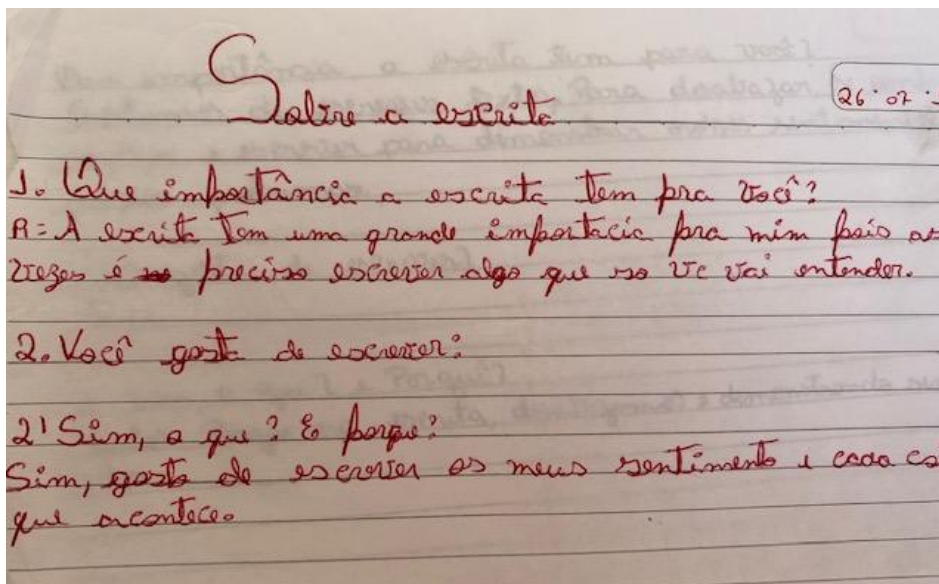 Sobre a escrita
26 07
1. Que importância a escrita tem pra você?
R= A escrita tem uma grande importacia pra mim pois as
vezes é preciso escrever algo que so vc vai entender.
2. Você gosta de escrever?
2' Sim, o que? E porque?
Sim, gosto de escrever os meus sentimento e cada
que acontece.